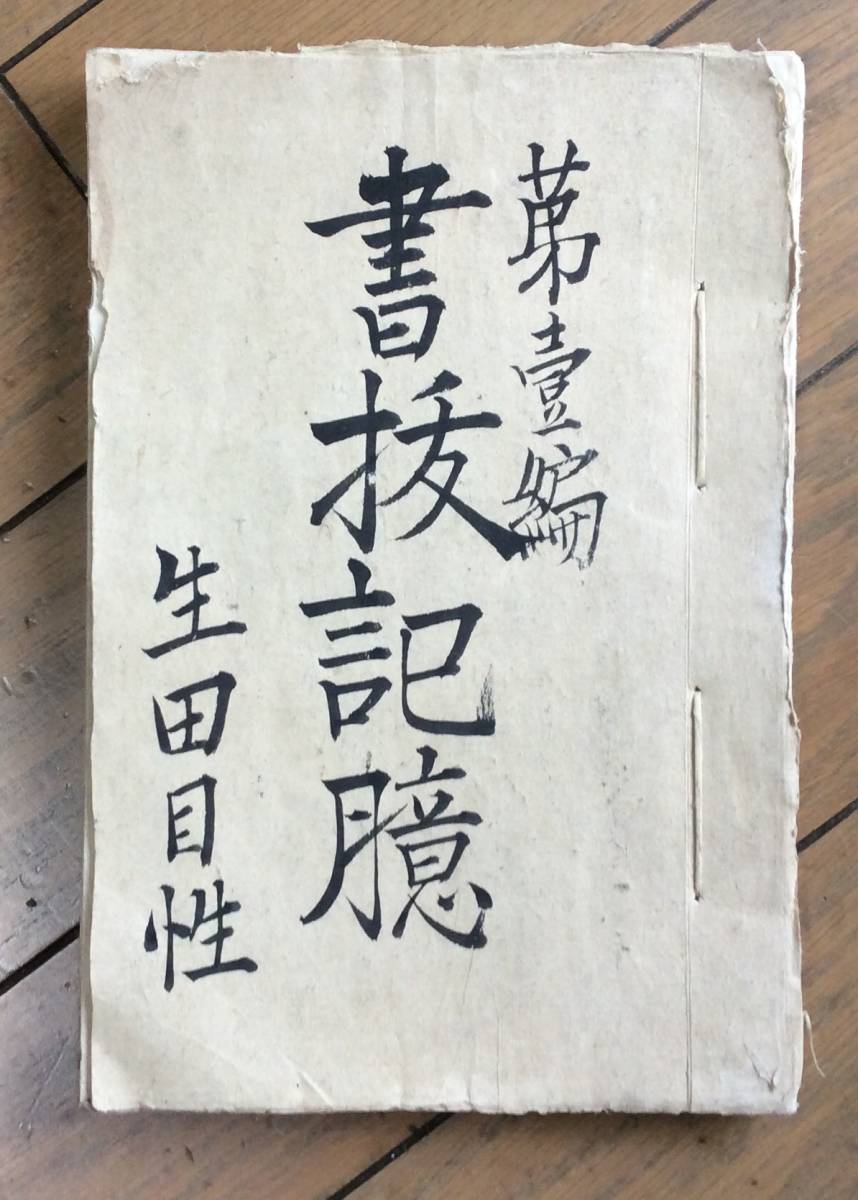 苐壹編
書抜記臆
生田目性